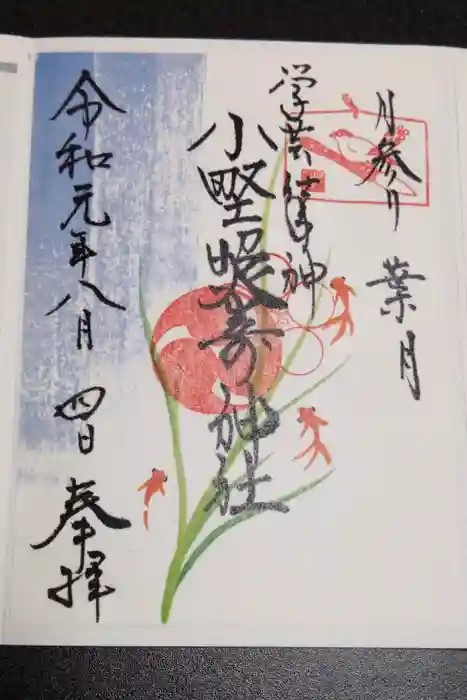 月参り 葉月
学芸の神
小野照崎神社
令和元年八月四日 奉拝